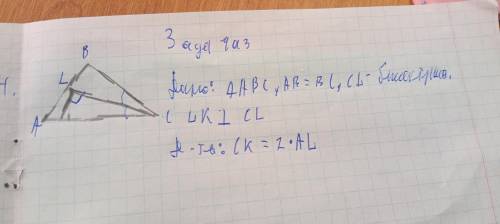 Задача 3
B
L
Дано: △ABC, AB = BC, CL - биссектриса.
A
C LK ⊥ CL
Д-ть: CK = 2·AL